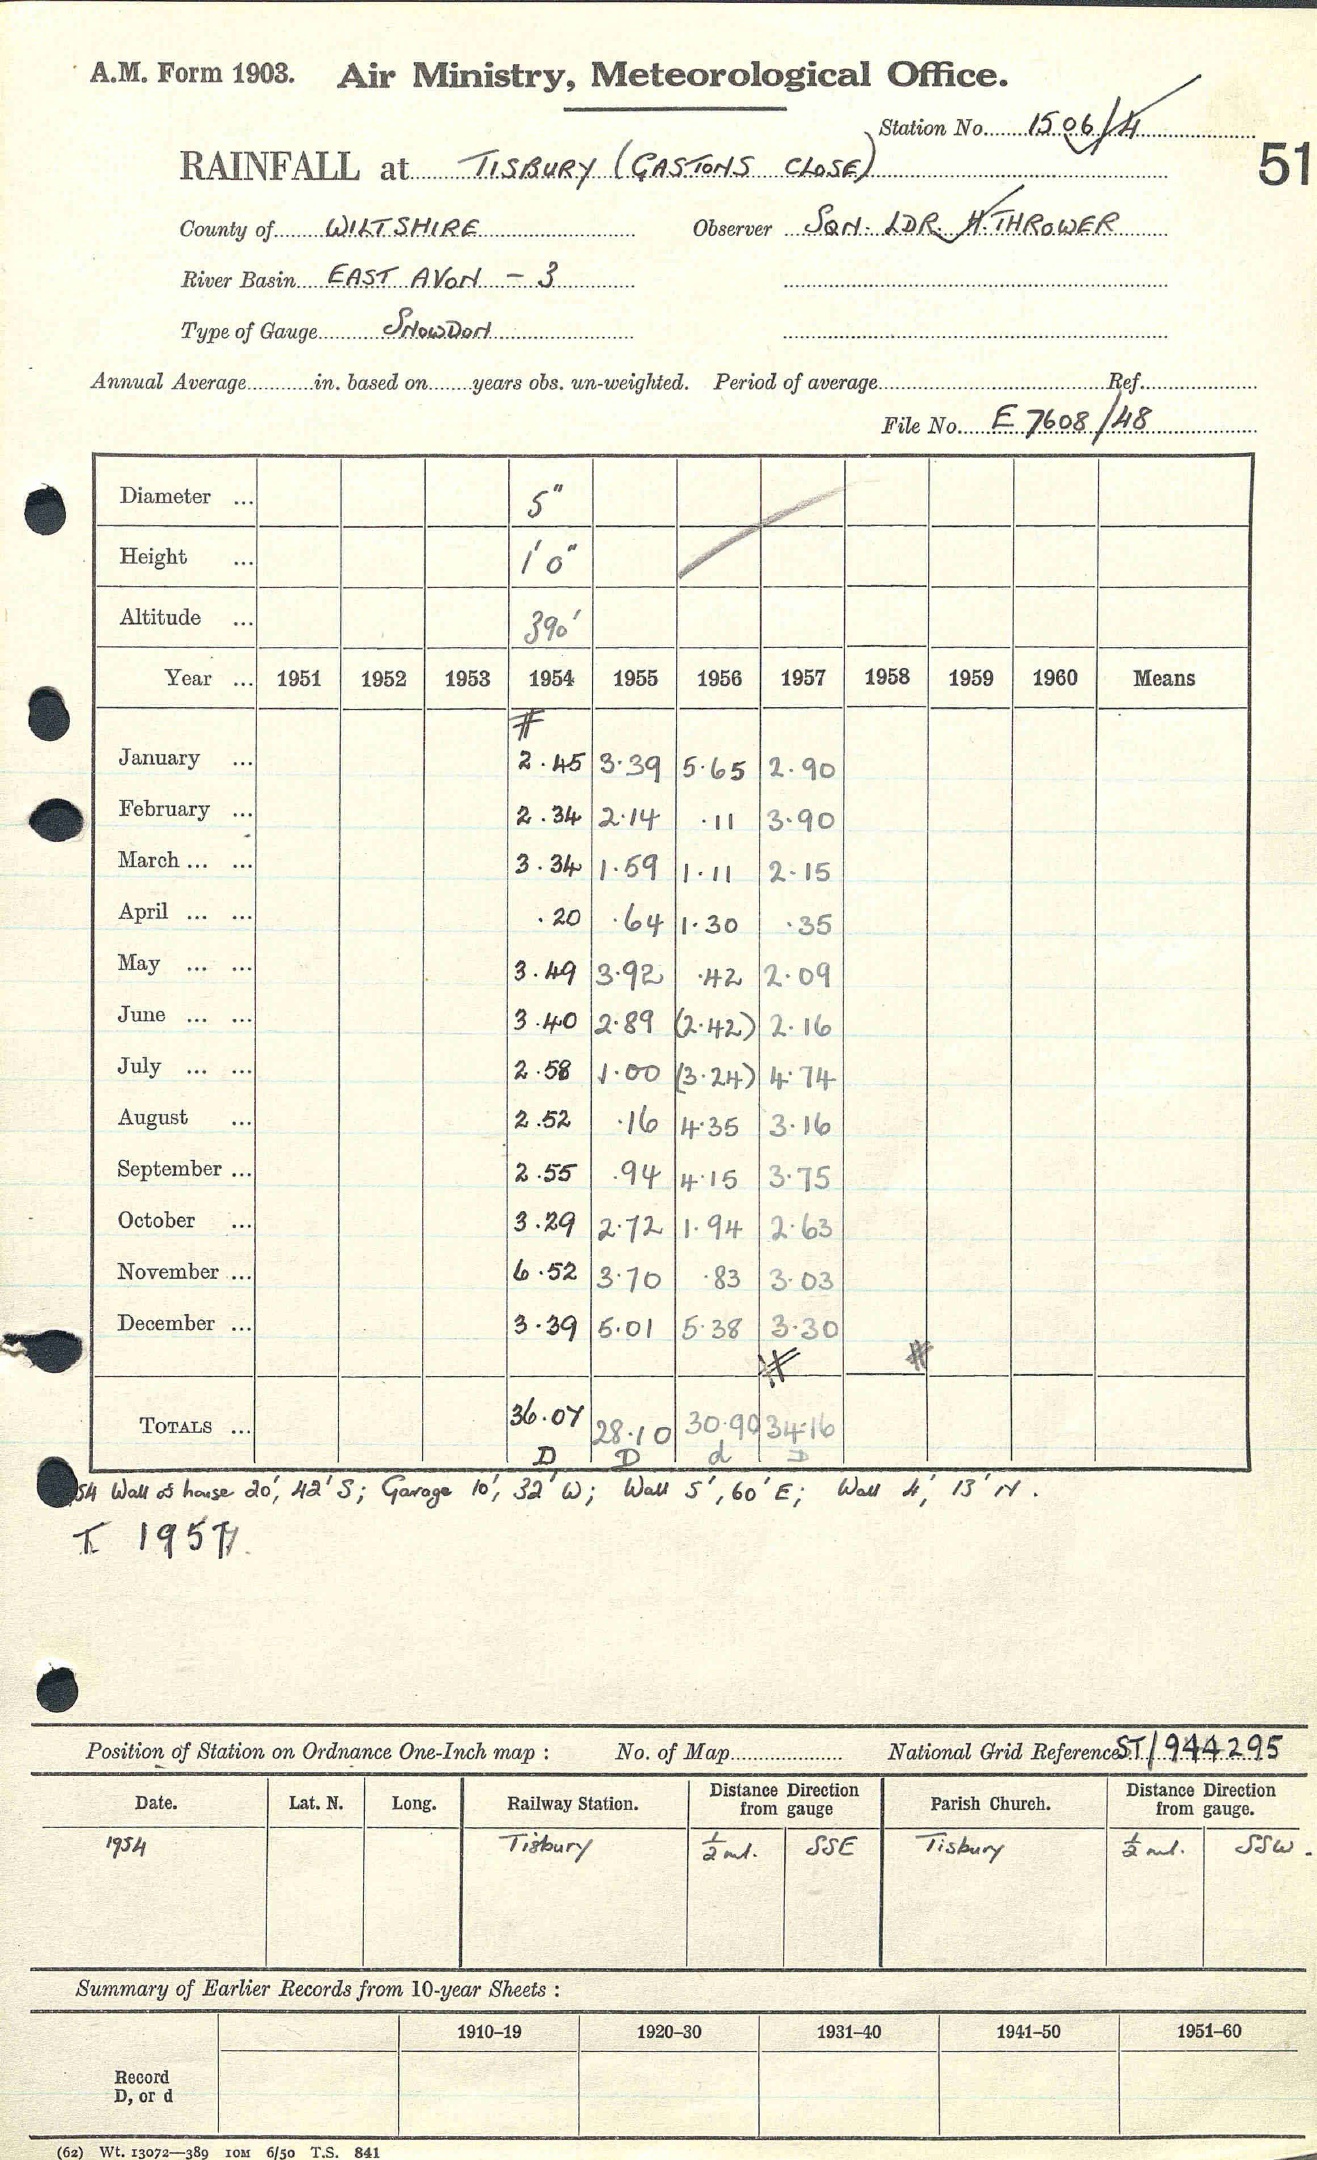 A.M. Form 1903. Air Ministry, Meteorological Office.
Station No. 1506/4
51
RAINFALL at TISBURY (GASTONS CLOSE)
County of WILTSHIRE Observer SQN. LDR. H. THROWER
River Basin EAST AVON - 3
Type of Gauge SNOWDON
Annual Average in. based on years obs. un-weighted. Period of average Ref.
File No. E 7608/48
Diameter ... 5"
Height ... 1' 0"
Altitude ... 390'
Year ... 1951 1952 1953 1954 1955 1956 1957 1958 1959 1960 Means
#
January ... 2.45 3.39 5.65 2.90
February ... 2.34 2.14 .11 3.90
March ... ... 3.34 1.59 1.11 2.15
April ... ... .20 .64 1.30 .35
May ... ... 3.49 3.92 .42 2.09
June ... ... 3.40 2.89 (2.42) 2.16
July ... ... 2.58 1.00 (3.24) 4.74
August ... 2.52 .16 4.35 3.16
September ... 2.55 .94 4.15 3.75
October ... 3.29 2.72 1.94 2.63
November ... 6.52 3.70 .83 3.03
December ... 3.39 5.01 5.38 3.30
# #
TOTALS ... 36.07 28.10 30.90 34.16
D D d D
54 Wall of house 20', 42' S; Garage 10', 32' W; Wall 5', 60' E; Wall 4', 13' N.
T 1957
Position of Station on Ordnance One-Inch map : No. of Map National Grid Reference ST/944295
Date. Lat. N. Long. Railway Station. Distance Direction from gauge Parish Church. Distance Direction from gauge.
1954 Tisbury ½ ml. SSE Tisbury ½ ml. SSW.
Summary of Earlier Records from 10-year Sheets :
1910–19 1920–30 1931–40 1941–50 1951–60
Record
D, or d
(62) Wt. 13072—389 10M 6/50 T.S. 841